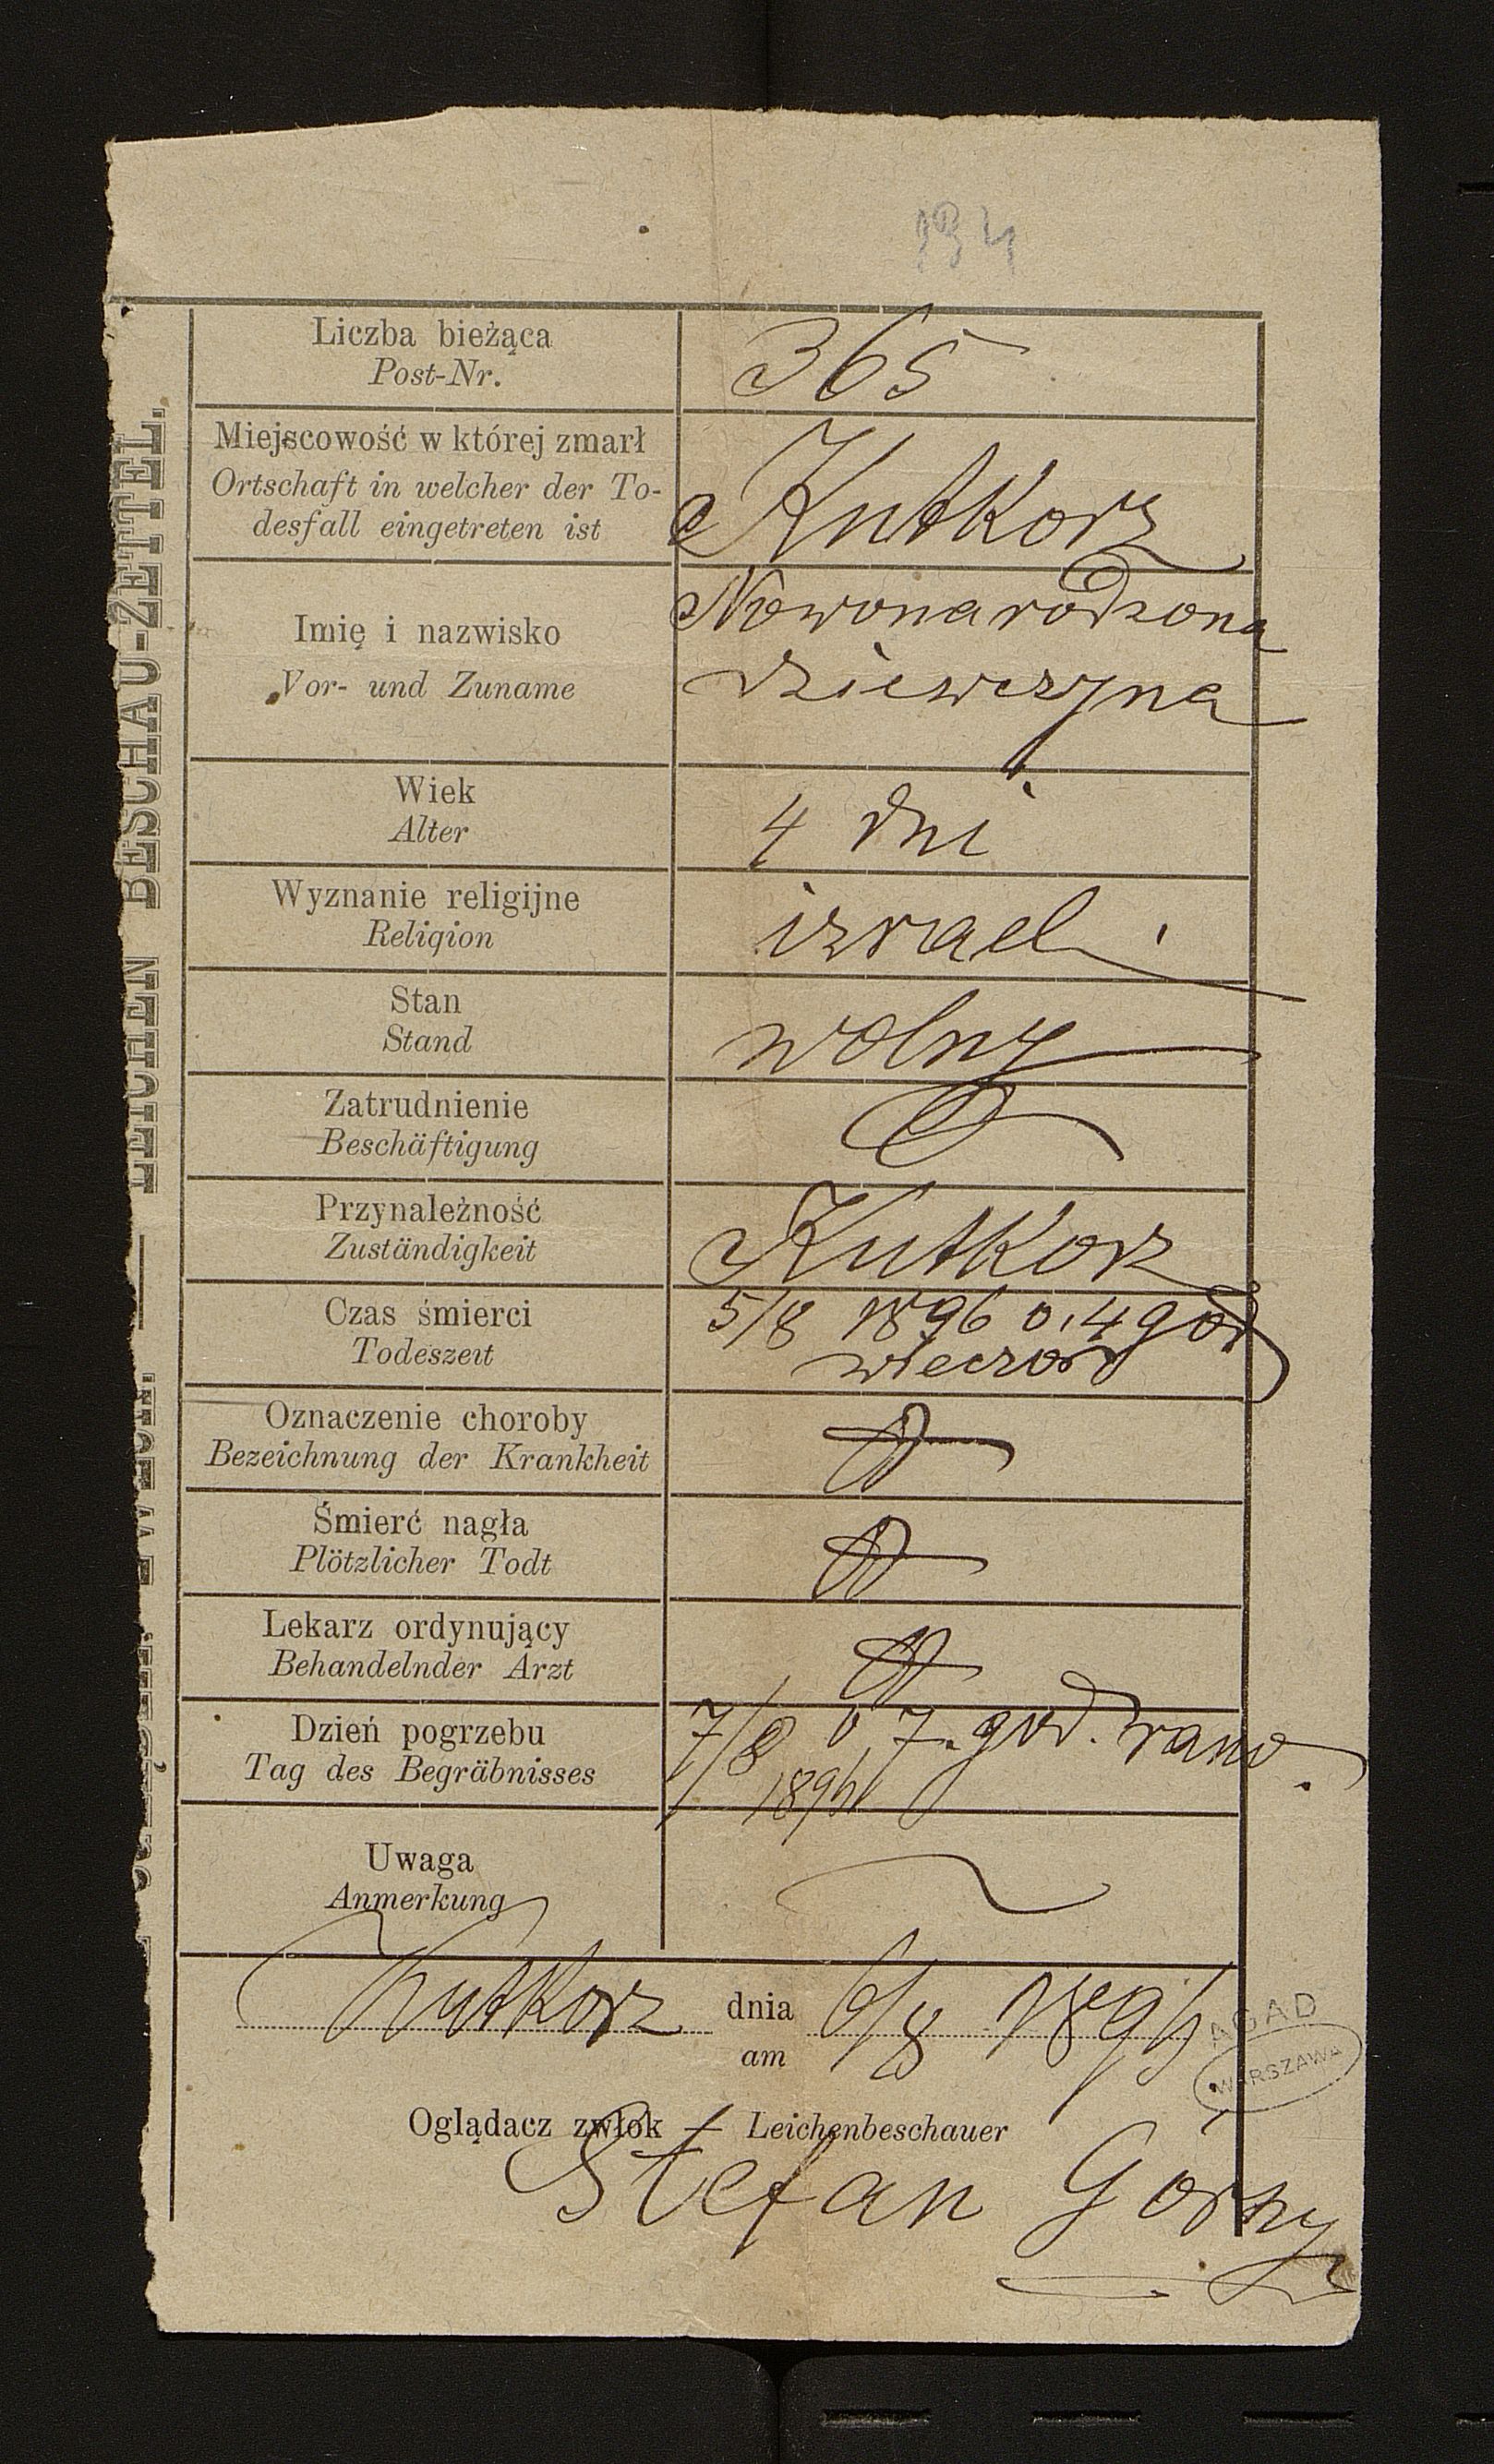 194
Liczba bieżąca
Post-Nr.
365
Miejscowość w której zmarł
Ortschaft in welcher der To-
desfall eingetreten ist
Kutkorz
Imię i nazwisko
Vor- und Zuname
Nowonarodzona
dziewczyna
Wiek
Alter
4 dni
Wyznanie religijne
Religion
izrael.
Stan
Stand
wolny
Zatrudnienie
Beschäftigung
Przynależność
Zuständigkeit
Kutkorz
Czas śmierci
Todeszeit
5/8 1896 o. 4 god
wieczor
Oznaczenie choroby
Bezeichnung der Krankheit
Śmierć nagła
Plötzlicher Todt
Lekarz ordynujący
Behandelnder Arzt
Dzień pogrzebu
Tag des Begräbnisses
7/8 o 7. god. rano.
1896
Uwaga
Anmerkung
Kutkorz dnia 6/8 1896
am
Oglądacz zwłok — Leichenbeschauer
Stefan Górny
AGAD
WARSZAWA
LEICHEN BESCHAU-ZETTEL.